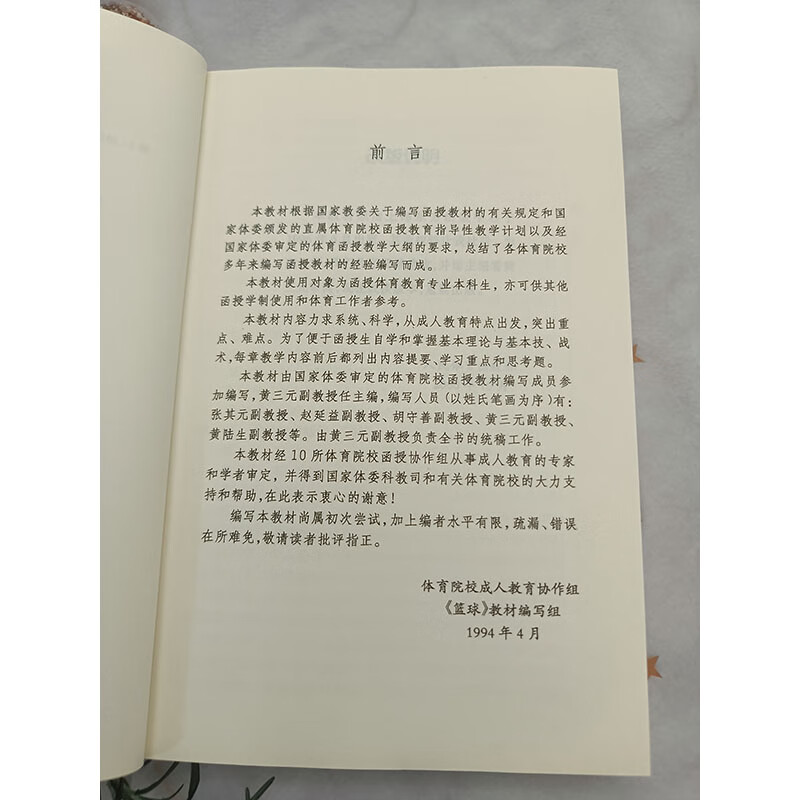 前言
本教材根据国家教委关于编写函授教材的有关规定和国
家体委颁发的直属体育院校函授教育指导性教学计划以及经
国家体委审定的体育函授教学大纲的要求，总结了各体育院校
多年来编写函授教材的经验编写而成。
本教材使用对象为函授体育教育专业本科生，亦可供其他
函授学制使用和体育工作者参考。
本教材内容力求系统、科学，从成人教育特点出发，突出重
点、难点。为了便于函授生自学和掌握基本理论与基本技、战
术，每章教学内容前后都列出内容提要、学习重点和思考题。
本教材由国家体委审定的体育院校函授教材编写成员参
加编写，黄三元副教授任主编，编写人员（以姓氏笔画为序）有：
张其元副教授、赵延益副教授、胡守善副教授、黄三元副教授、
黄陆生副教授等。由黄三元副教授负责全书的统稿工作。
本教材经10所体育院校函授协作组从事成人教育的专家
和学者审定，并得到国家体委科教司和有关体育院校的大力支
持和帮助，在此表示衷心的谢意！
编写本教材尚属初次尝试，加上编者水平有限，疏漏、错误
在所难免，敬请读者批评指正。
体育院校成人教育协作组
《篮球》教材编写组
1994年4月